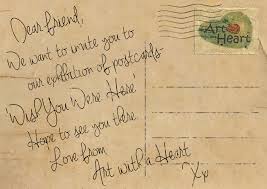 Dear friend,
We want to invite you to
our exhibition of postcards
'Wish You Were Here'
Hope to see you there
Love from
Art with a Heart
Xx
Art
with
a
Heart